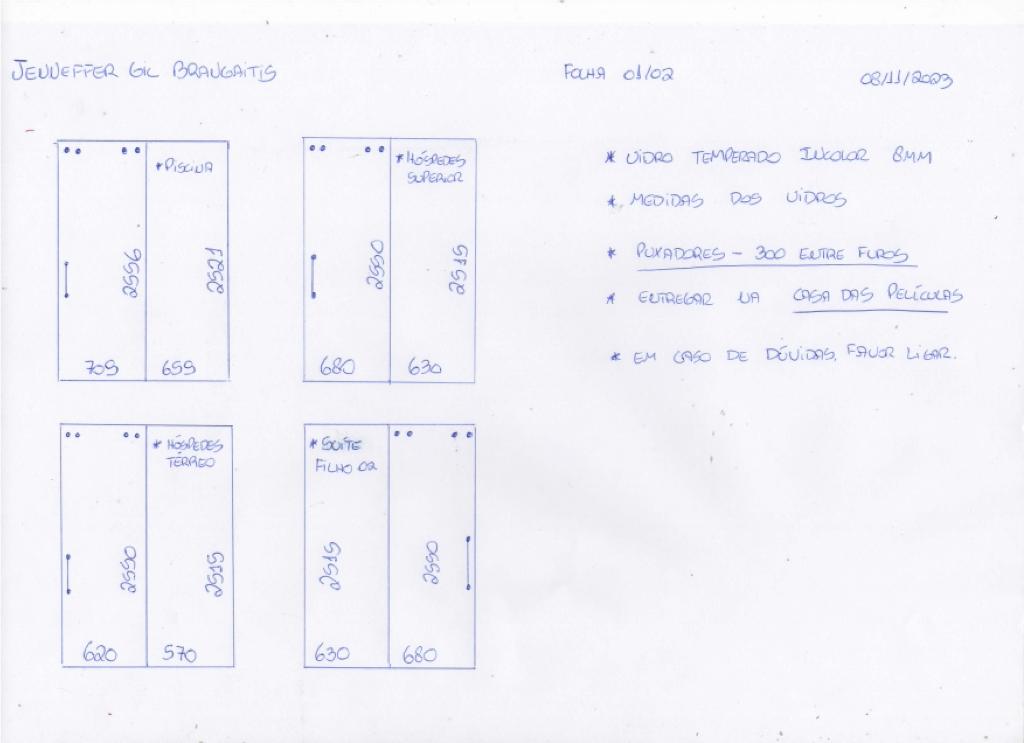 JENNEFFER GIL BRAUGAITIS
FOLHA 01/02
08/11/2023
* PISCINA
2556
2521
709
659
* HÓSPEDES
SUPERIOR
2550
2515
680
630
* HÓSPEDES
TÉRREO
2550
2515
620
570
* SUÍTE
FILHO 02
2515
2550
630
680
* VIDRO TEMPERADO INCOLOR 8MM
* MEDIDAS DOS VIDROS
* PUXADORES - 300 ENTRE FUROS
* ENTREGAR NA CASA DAS PELÍCULAS
* EM CASO DE DÚVIDAS, FAVOR LIGAR.